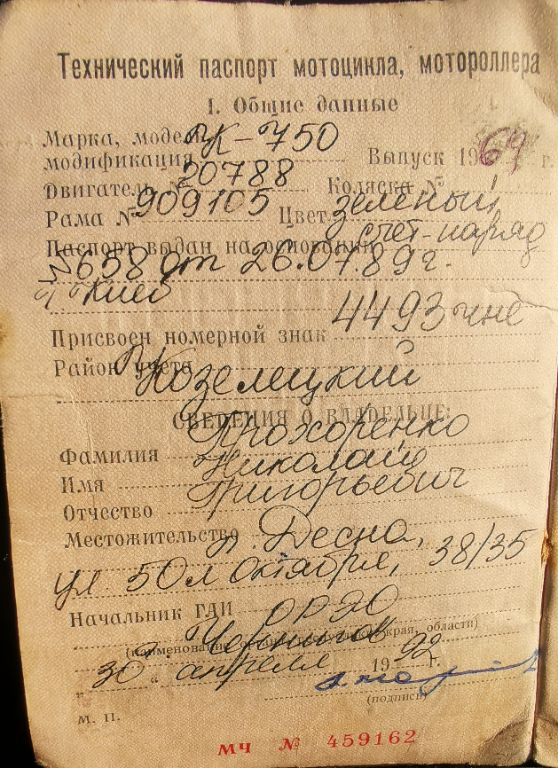 Технический паспорт мотоцикла, мотороллера
1. Общие данные
Марка, модель К-750
модификация Выпуск 1969 г.
Двигатель № 20788 Коляска №
Рама № 909105 Цвет зеленый
Паспорт выдан на основании счет-наряд
№ 658 от 26.07.89г.
г. Киев
Присвоен номерной знак 4493 чне
Район учета
Козелецкий
СВЕДЕНИЯ О ВЛАДЕЛЬЦЕ:
Фамилия Прохоренко
Имя Николай
Отчество Григорьевич
Местожительство п. Десна,
ул 50л Октября, 38/35
Начальник ГАИ ОРЭО
Чернигов
(наименование края, области)
" 30 " апреля 1992 г.
(подпись)
М. П.
МЧ № 459162